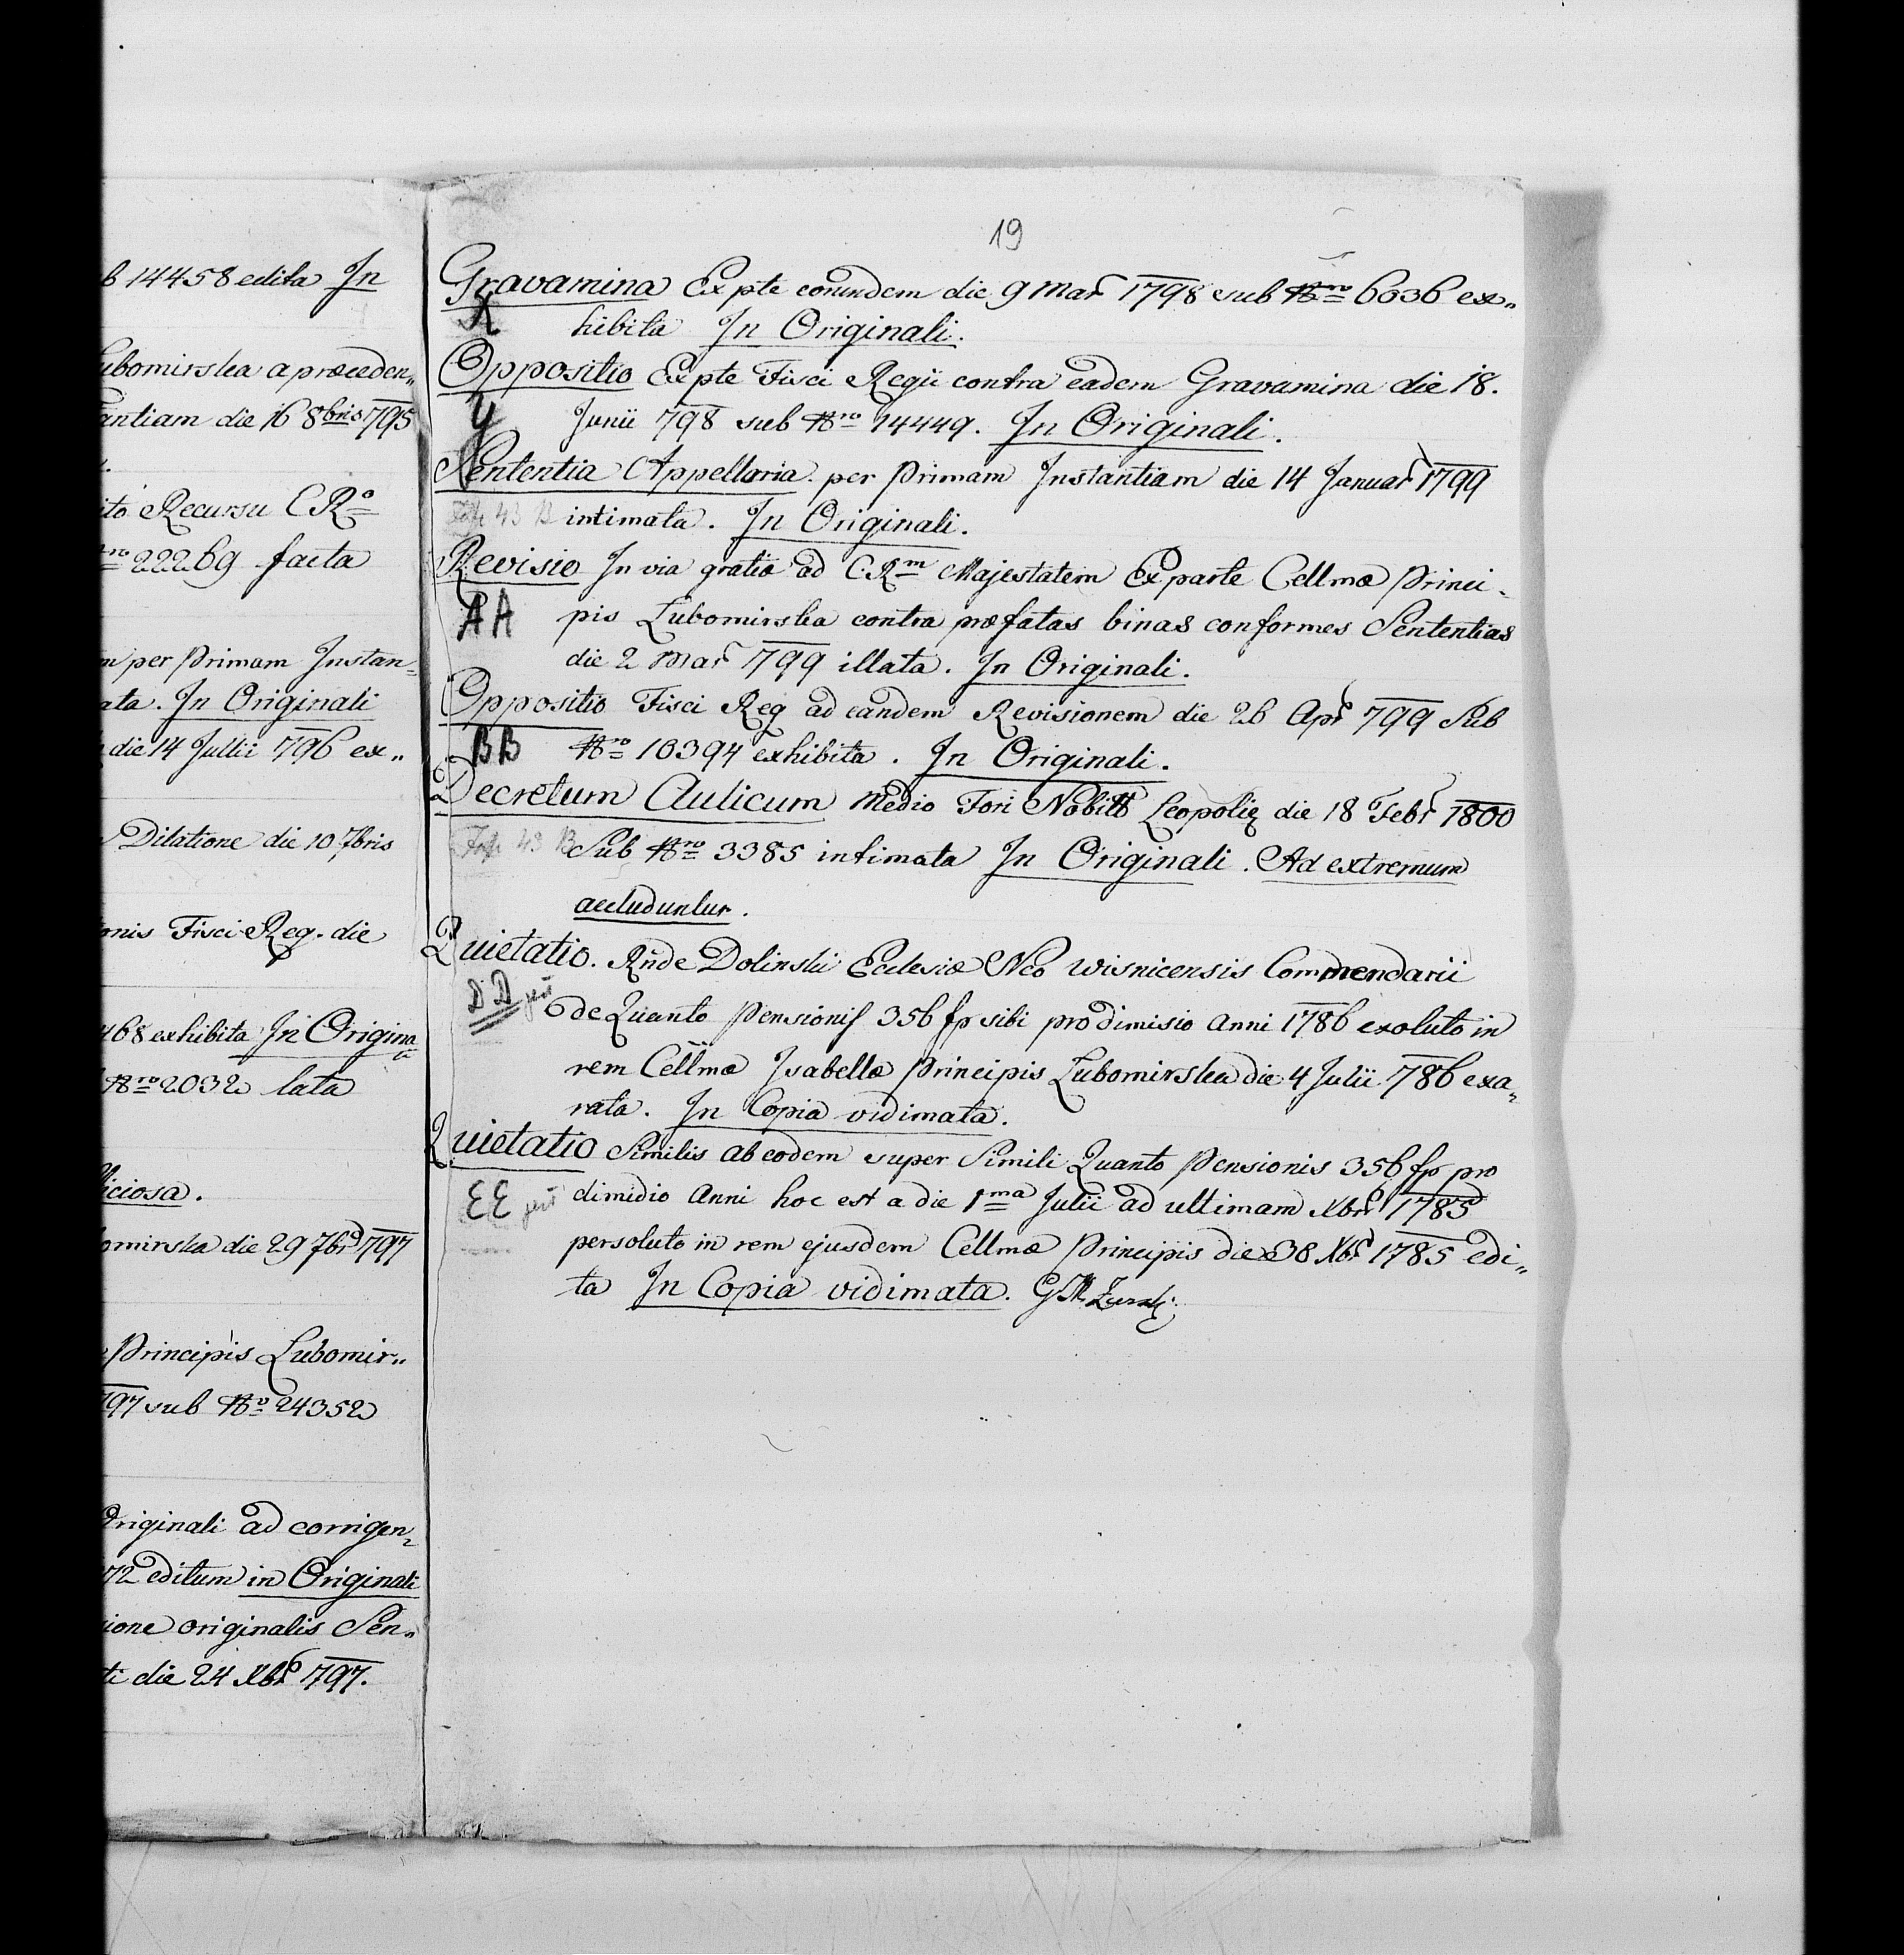 b 14458 edita In
ubomirska a præceden„
antiam die 16 8bris 795
ito Recursu C Ro
nro 22269 facta
m per Primam Instan„
ata. In Originali
die 14 Julii 796 ex„
Dilatione die 10 7bris
onis Fisci Reg. die
468 exhibita In Origina
li
Nro 2032 lata
liciosa.
omirska die 29 7br 797
Principis Lubomir„
797 sub No 24352
Originali ad corrigen„
72 editum in Originali
ione originalis Sen„
ti die 24 Xbr 797.
19
Gravamina Ex pte eorundem die 9 Mar 1798 sub Nro 6036 ex„
X hibita In Originali.
Oppositio Ex pte Fisci Regii contra eadem Gravamina die 18.
Y Junii 798 sub Nro 14449. In Originali.
Sententia Appellaria per Primam Instantiam die 14 Januar 1799
43 B intimata. In Originali.
Revisio In via gratiæ ad C.Rm Majestatem Ex parte Cellmæ Princi„
AA pis Lubomirska contra præfatas binas conformes Sententias
die 2 Mar 799 illata. In Originali.
Oppositio Fisci Reg ad eandem Revisionem die 26 Apr 799 Sub
BB Nro 10394 exhibita. In Originali.
Decretum Aulicum medio Fori Nobilt Leopolię die 18 Febr 1800
43 B Sub Nro 3385 intimata In Originali. Ad extremum
accluduntur.
Quietatio. Rnde Dolinski Ecclesiæ Neo Wisnicensis Commendarii
DD jest de Quanto Pensionis 356 fp sibi pro dimisio anni 1786 exoluto in
rem Cellmæ Isabellæ Principis Lubomirska die 4 Julii 786 exa„
rata. In Copia vidimata.
Quietatio Similis ab eodem super Simili Quanto Pensionis 356 fp pro
EE jest dimidio anni hoc est a die 1ma Julii ad ultimam Xbr 1785
persoluto in rem ejusdem Cellmæ Principis die 30 Xbr 1785 edi„
ta In Copia vidimata.